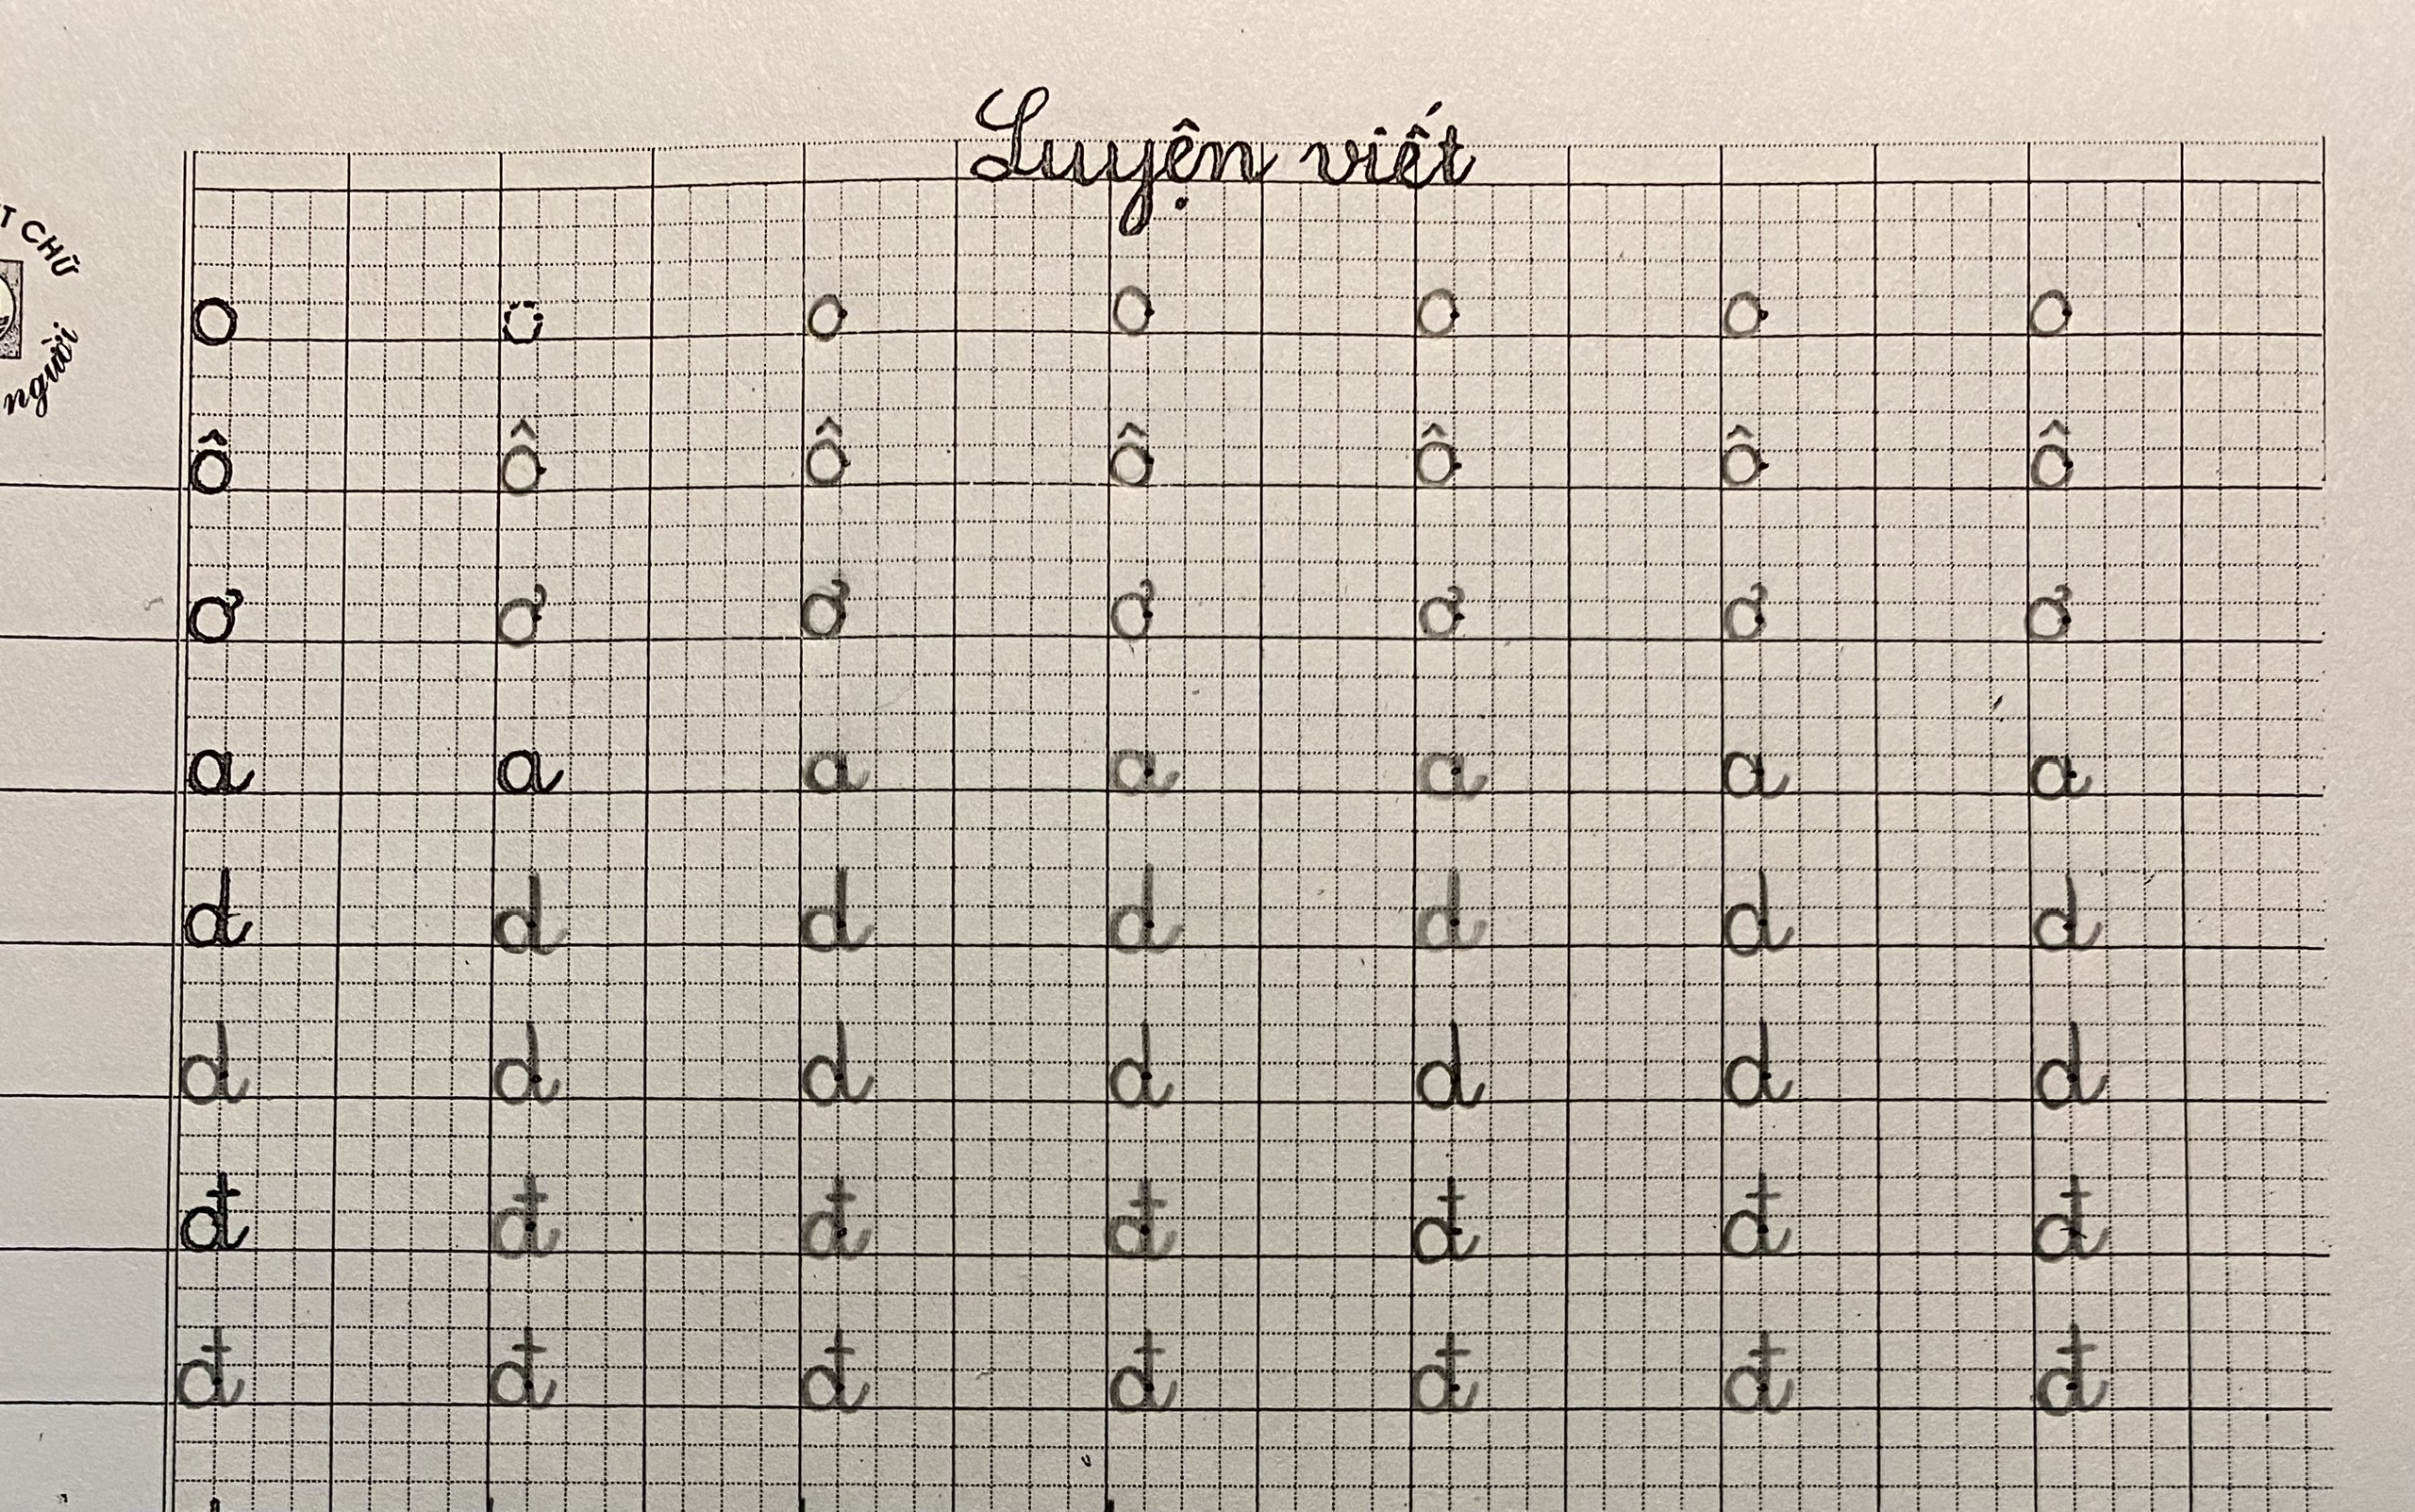 Luyện viết
T CHỮ
người
o o o o o o o
ô ô ô ô ô ô ô
ơ ơ ơ ơ ơ ơ ơ
a a a a a a a
d d d d d d d
d d d d d d d
đ đ đ đ đ đ đ
đ đ đ đ đ đ đ